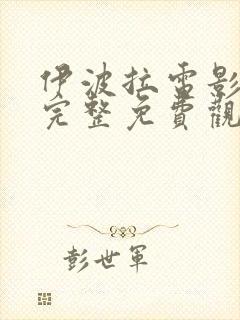 伊波拉電影
完整免費觀
彭世軍